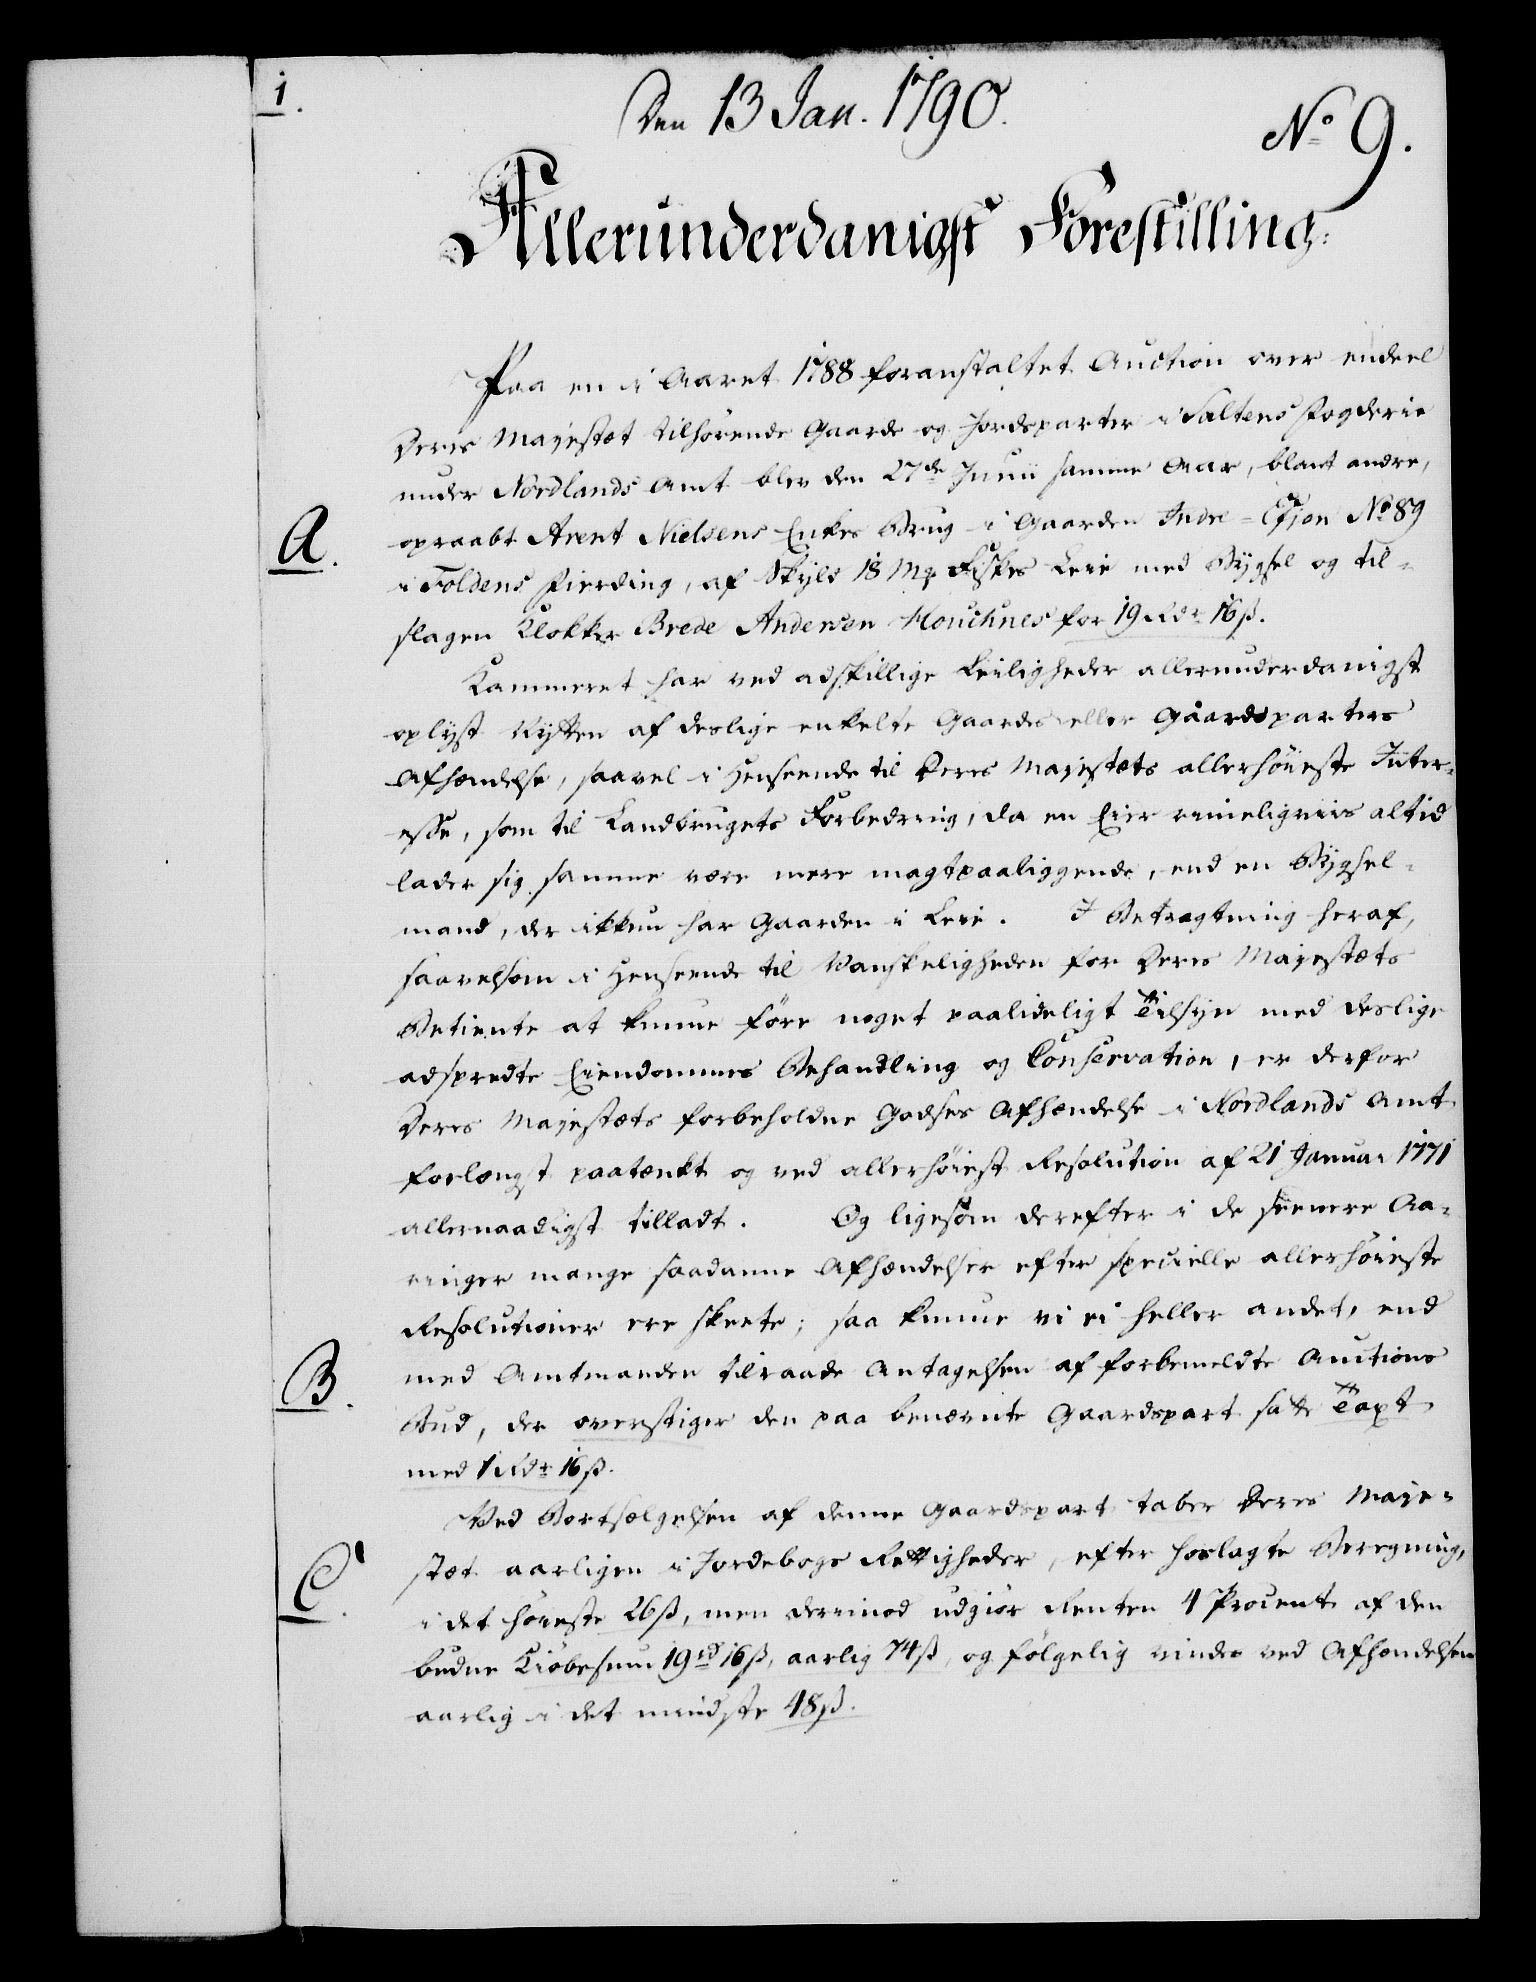 1.
Den 13 Jan. 1790.
No 9.
Allerunderdanigst Forestilling.
Paa en i Aaret 1788 foranstaltet Auction over endeel
Deres Majestet tilhørende Gaarde og Jordeparter i Saltens Fogderie
under Nordlands Amt blev den 27de Junii samme Aar, blant andre,
A.
opraabt Arent Nielsens Enkes Brug i Gaarden Indre-Efjon No 89
i Foldens Fierding, af Skyld 18 Mk Fiskes Leie med Bygsel og til-
slagen Klokker Brede Andersen for 19 Rdr 16 ß.
Kammeret har ved adskillige Leiligheder allerunderdanigst
oplyst Nytten af deslige enkelte Gaardes eller Gaardsparters
Afhændelse, saavel i Henseende til Deres Majestæts allerhøieste Inter-
esse, som til Landbrugets Forbedring, da en Eier rimeligviis altid
lader sig samme være mere magtpaaliggende, end en Bygsel-
mand, der ikkun har Gaarden i Leie. I Betragtning heraf,
saavelsom i Henseende til Vanskeligheden for Deres Majestæts
Betiente at kunne føre noget paalideligt Tilsyn med deslige
adspredte Eiendommes Behandling og Conservation, er derfor
Deres Majestæts forbeholdne Godses Afhændelse i Nordlands Amt
forlængst paatænkt og ved allerhøiest Resolution af 21 Januar 1771
allernaadigst tilladt. Og ligesom derefter i de seenere Aa-
ringer mange saadanne Afhændelser efter specielle allerhøieste
Resolutioner ere skeete; saa kunne vi ei heller andet, end
B.
med Amtmanden tilraade Antagelsen af forbemeldte Auctions
Bud, der overstiger den paa benævnte Gaardspart satte Taxt
med 1 Rdr 16 ß.
Ved Bortsælgelsen af denne Gaardspart taber Deres Maje-
C.
stæt aarligen i Jordebogs Rettigheder, efter hoslagte Beregning,
i det høieste 26 ß, men derimod udgiør Renten 4 Procent af den
budne Kiøbesum 19 rd 16 ß, aarlig 74 ß, og følgelig vindes ved Afhændelsen
aarlig i det mindste 48 ß.